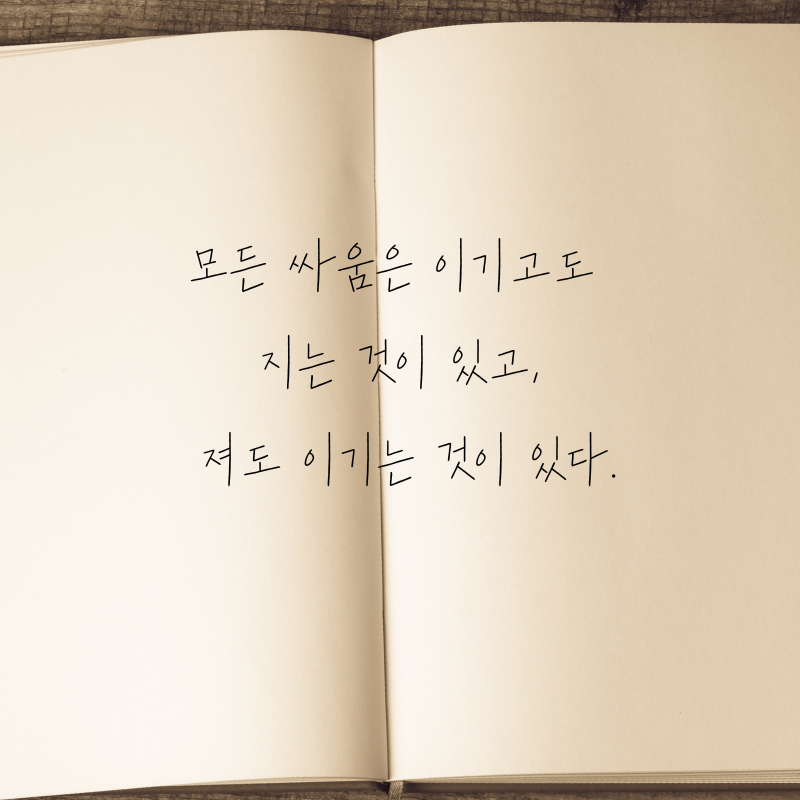 모든 싸움은 이기고도
지는 것이 있고,
져도 이기는 것이 있다.